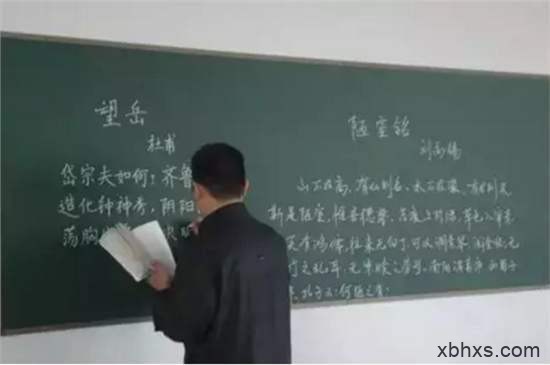 望岳
杜甫
岱宗夫如何？齐鲁
造化钟神秀，阴阳
荡胸
陋室铭
刘禹锡
山不在高，有仙则名。水不在深，有龙则灵
斯是陋室，惟吾德馨。苔痕上阶绿，草色入帘青
笑有鸿儒，往来无白丁。可以调素琴，阅金经。无
之乱耳，无案牍之劳形。南阳诸葛庐，西蜀子
孔子云：何陋之有？
xbhxs.com